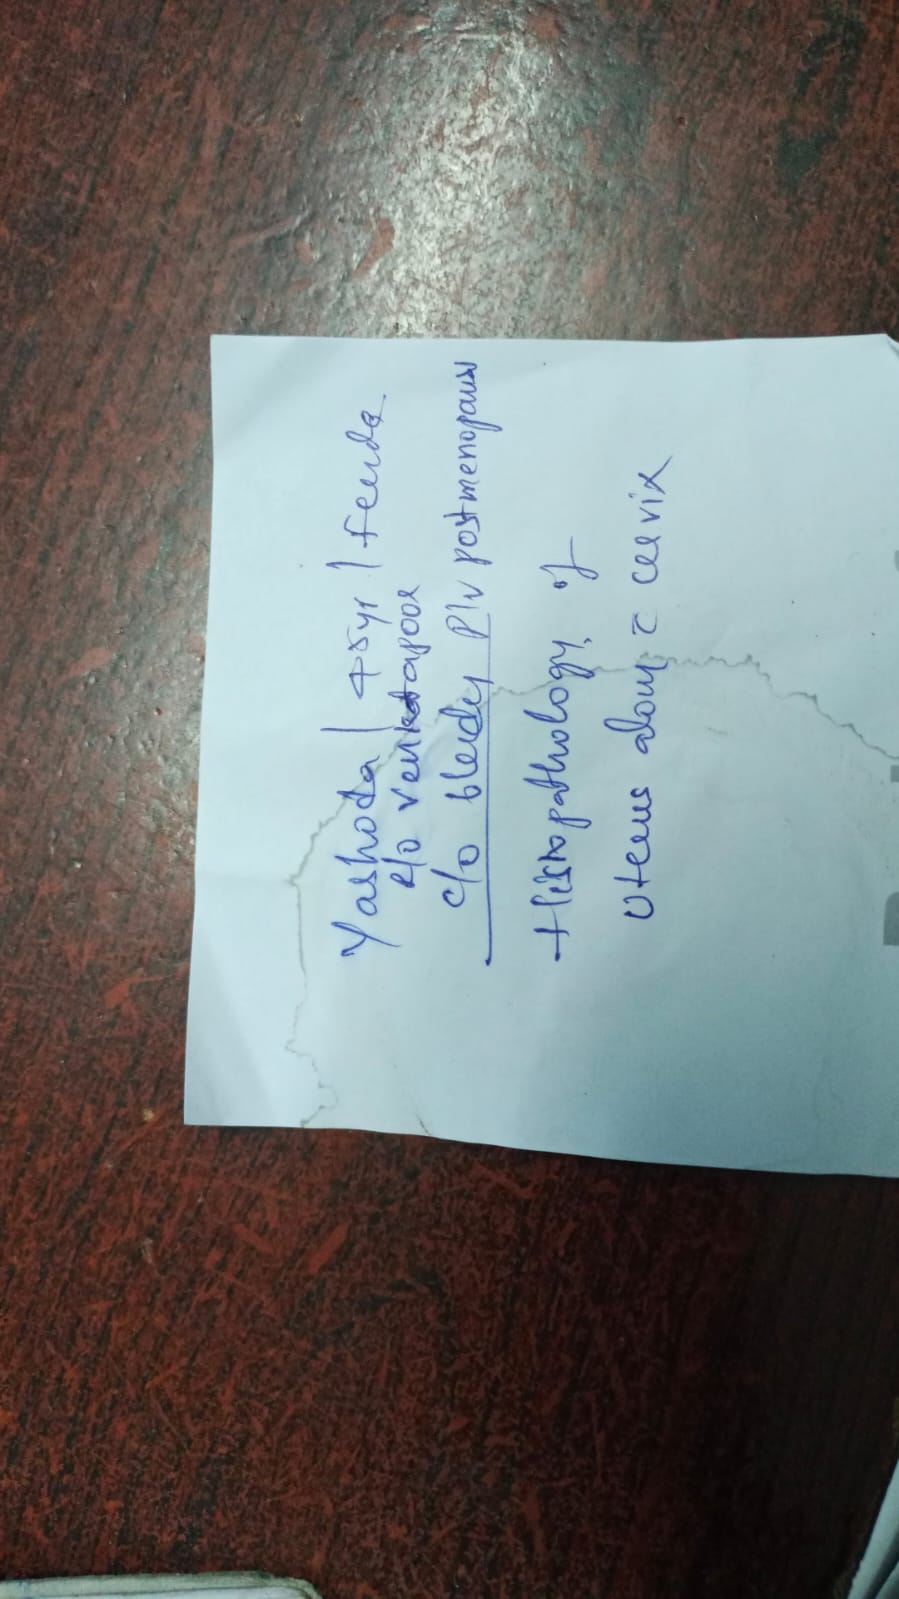 Yashoda / 45yr / female
R/o Venkatapoor
c/o bleedg P/v postmenopaus
Histopathology of
Uterus along c̄ cervix